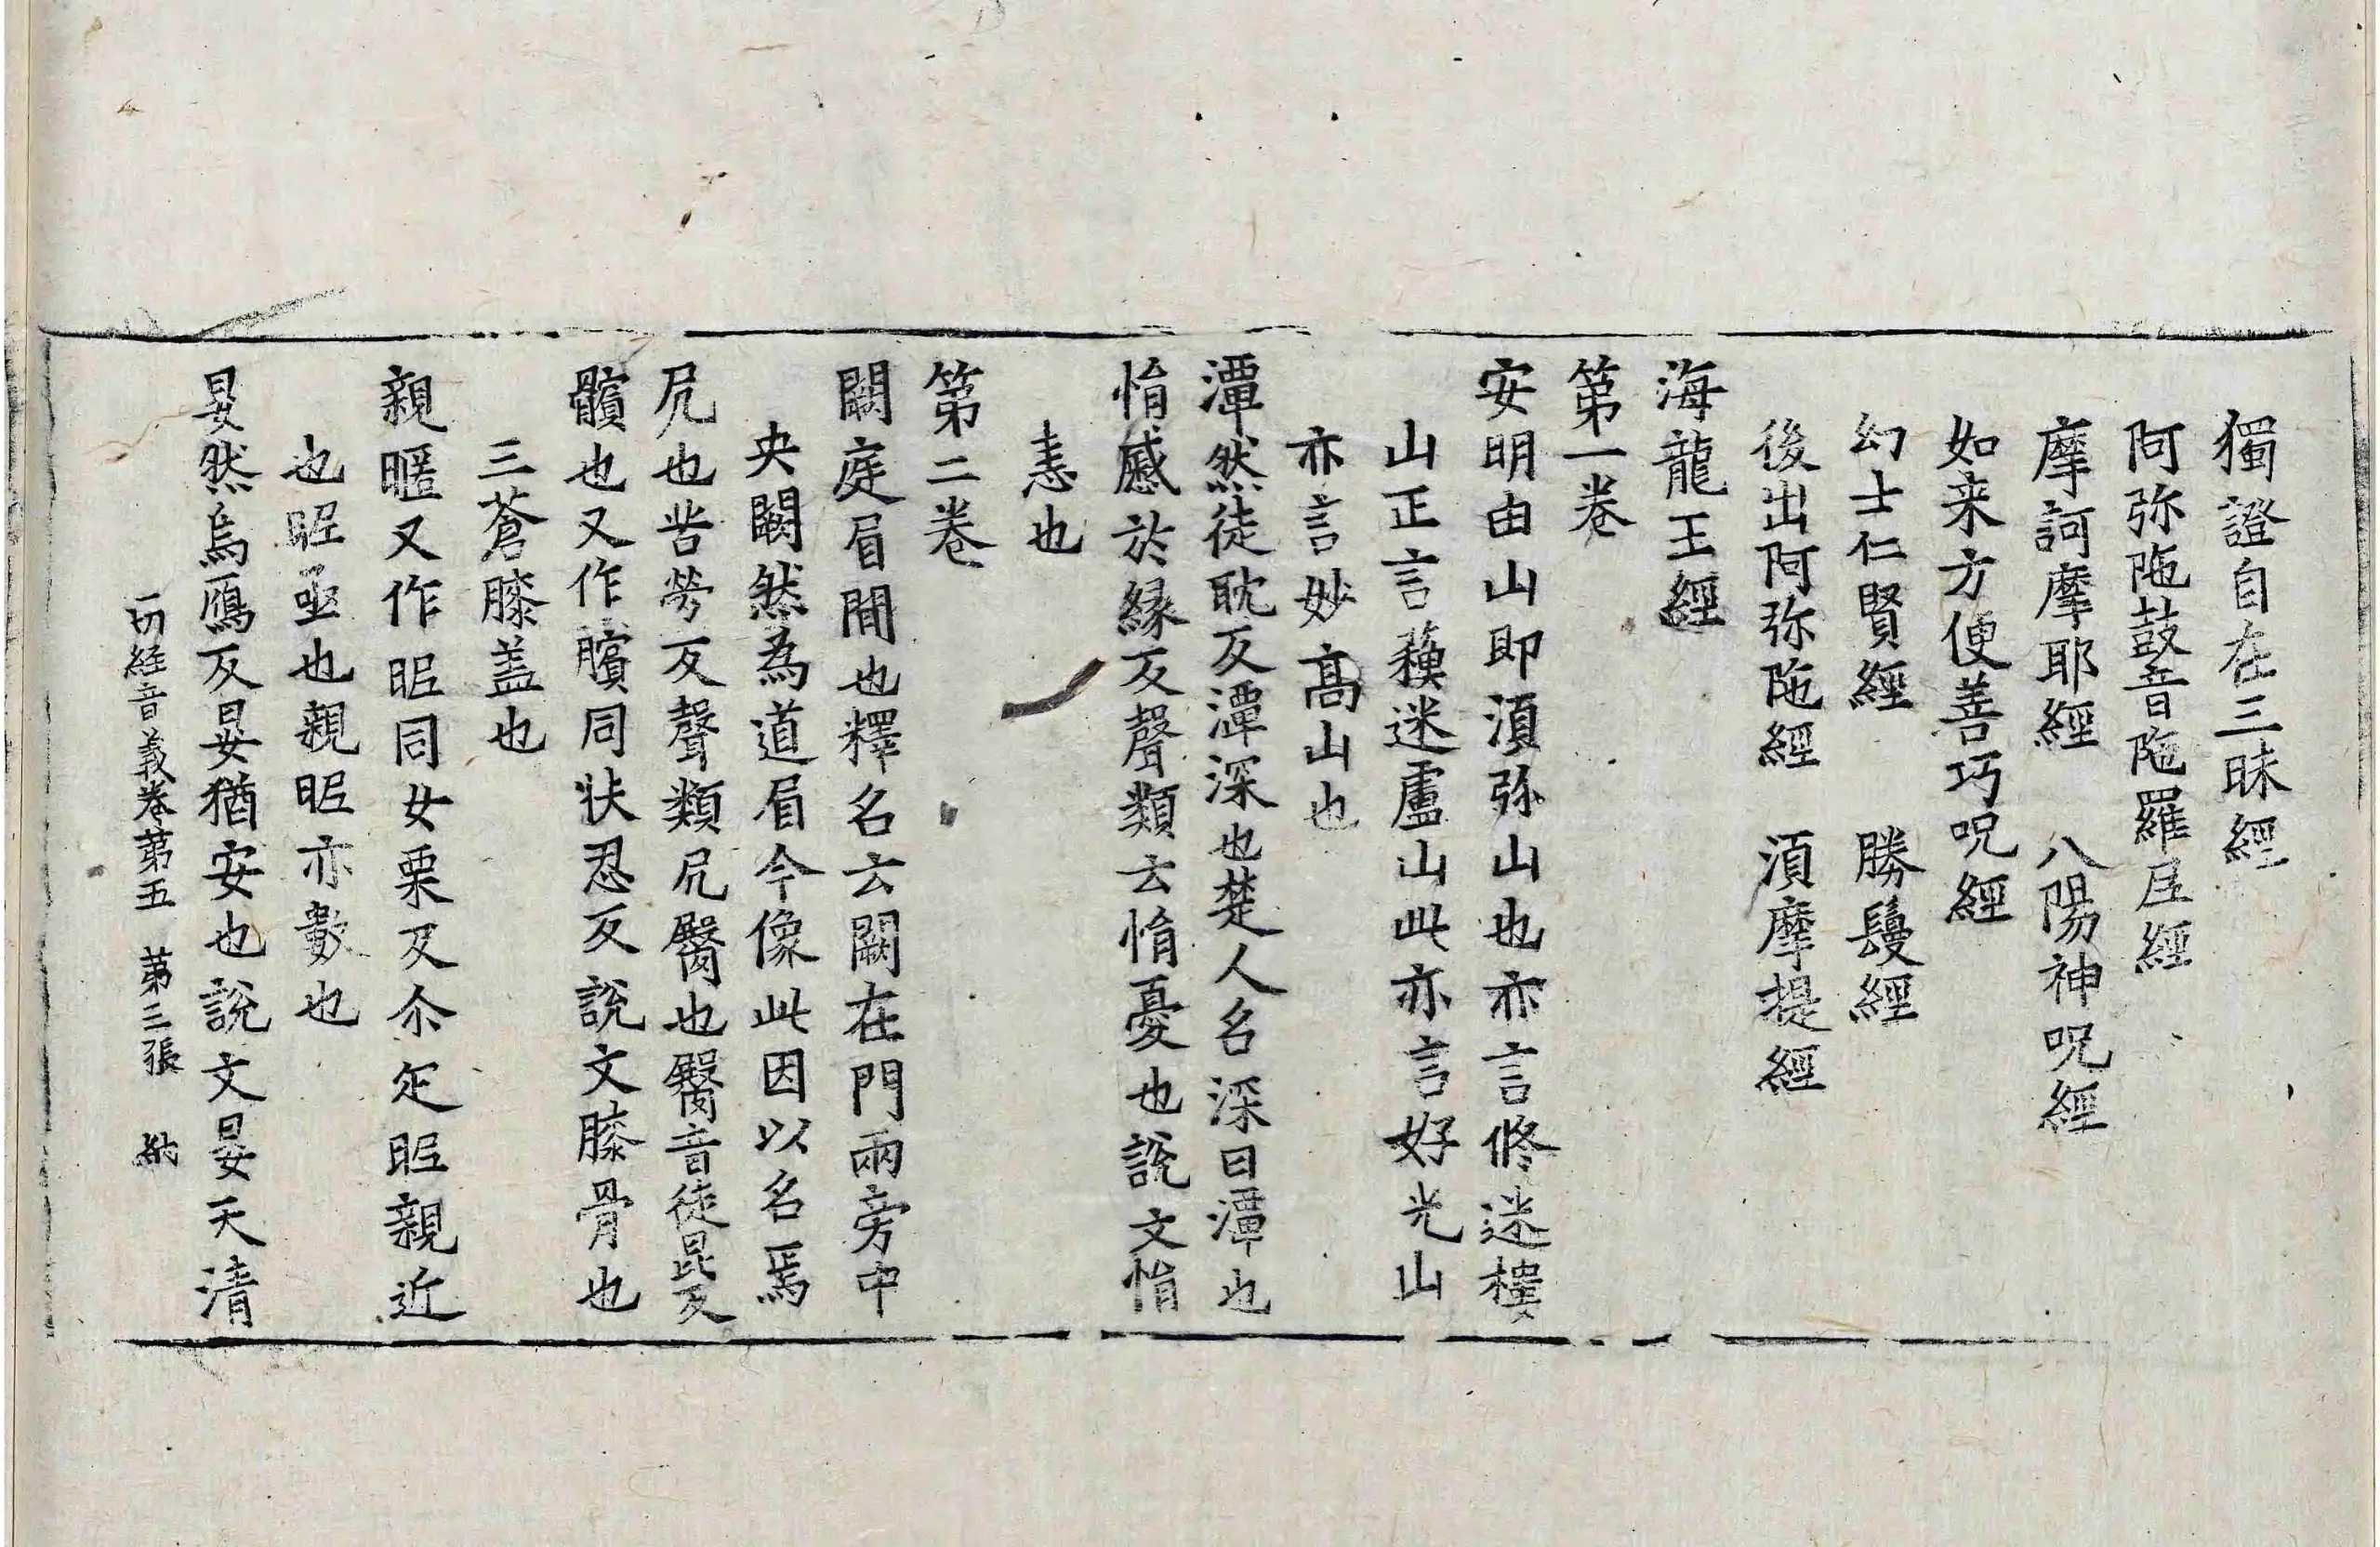 獨證自在三昧經
阿弥陁鼓音陁羅𡰱經
摩訶摩耶經　八陽神呪經
如来方便善巧呪經
幻士仁賢經　勝鬘經
後出阿弥陁經　湏摩提經
海龍王經
第一卷
安明由山即湏弥山也亦言脩迷樓
山正言蘓迷盧山此亦言好光山
亦言妙高山也
潭然徒耽反潭深也楚人名深曰潭也
悁慼於緣反聲類云悁憂也說文悁
恚也
第二卷
闕庭眉間也釋名云闕在門兩旁中
央闕然為道眉今像此因以名焉
尻也苦勞反聲類尻臋也臋音徒昆反
髕也又作臏同扶忍反說文膝骨也
三蒼膝盖也
親暱又作昵同女栗反尒疋昵親近
也昵亟也親昵亦數也
㫫然烏鴈反㫫猶安也說文㫫天清
一切經音義卷第五　第三張